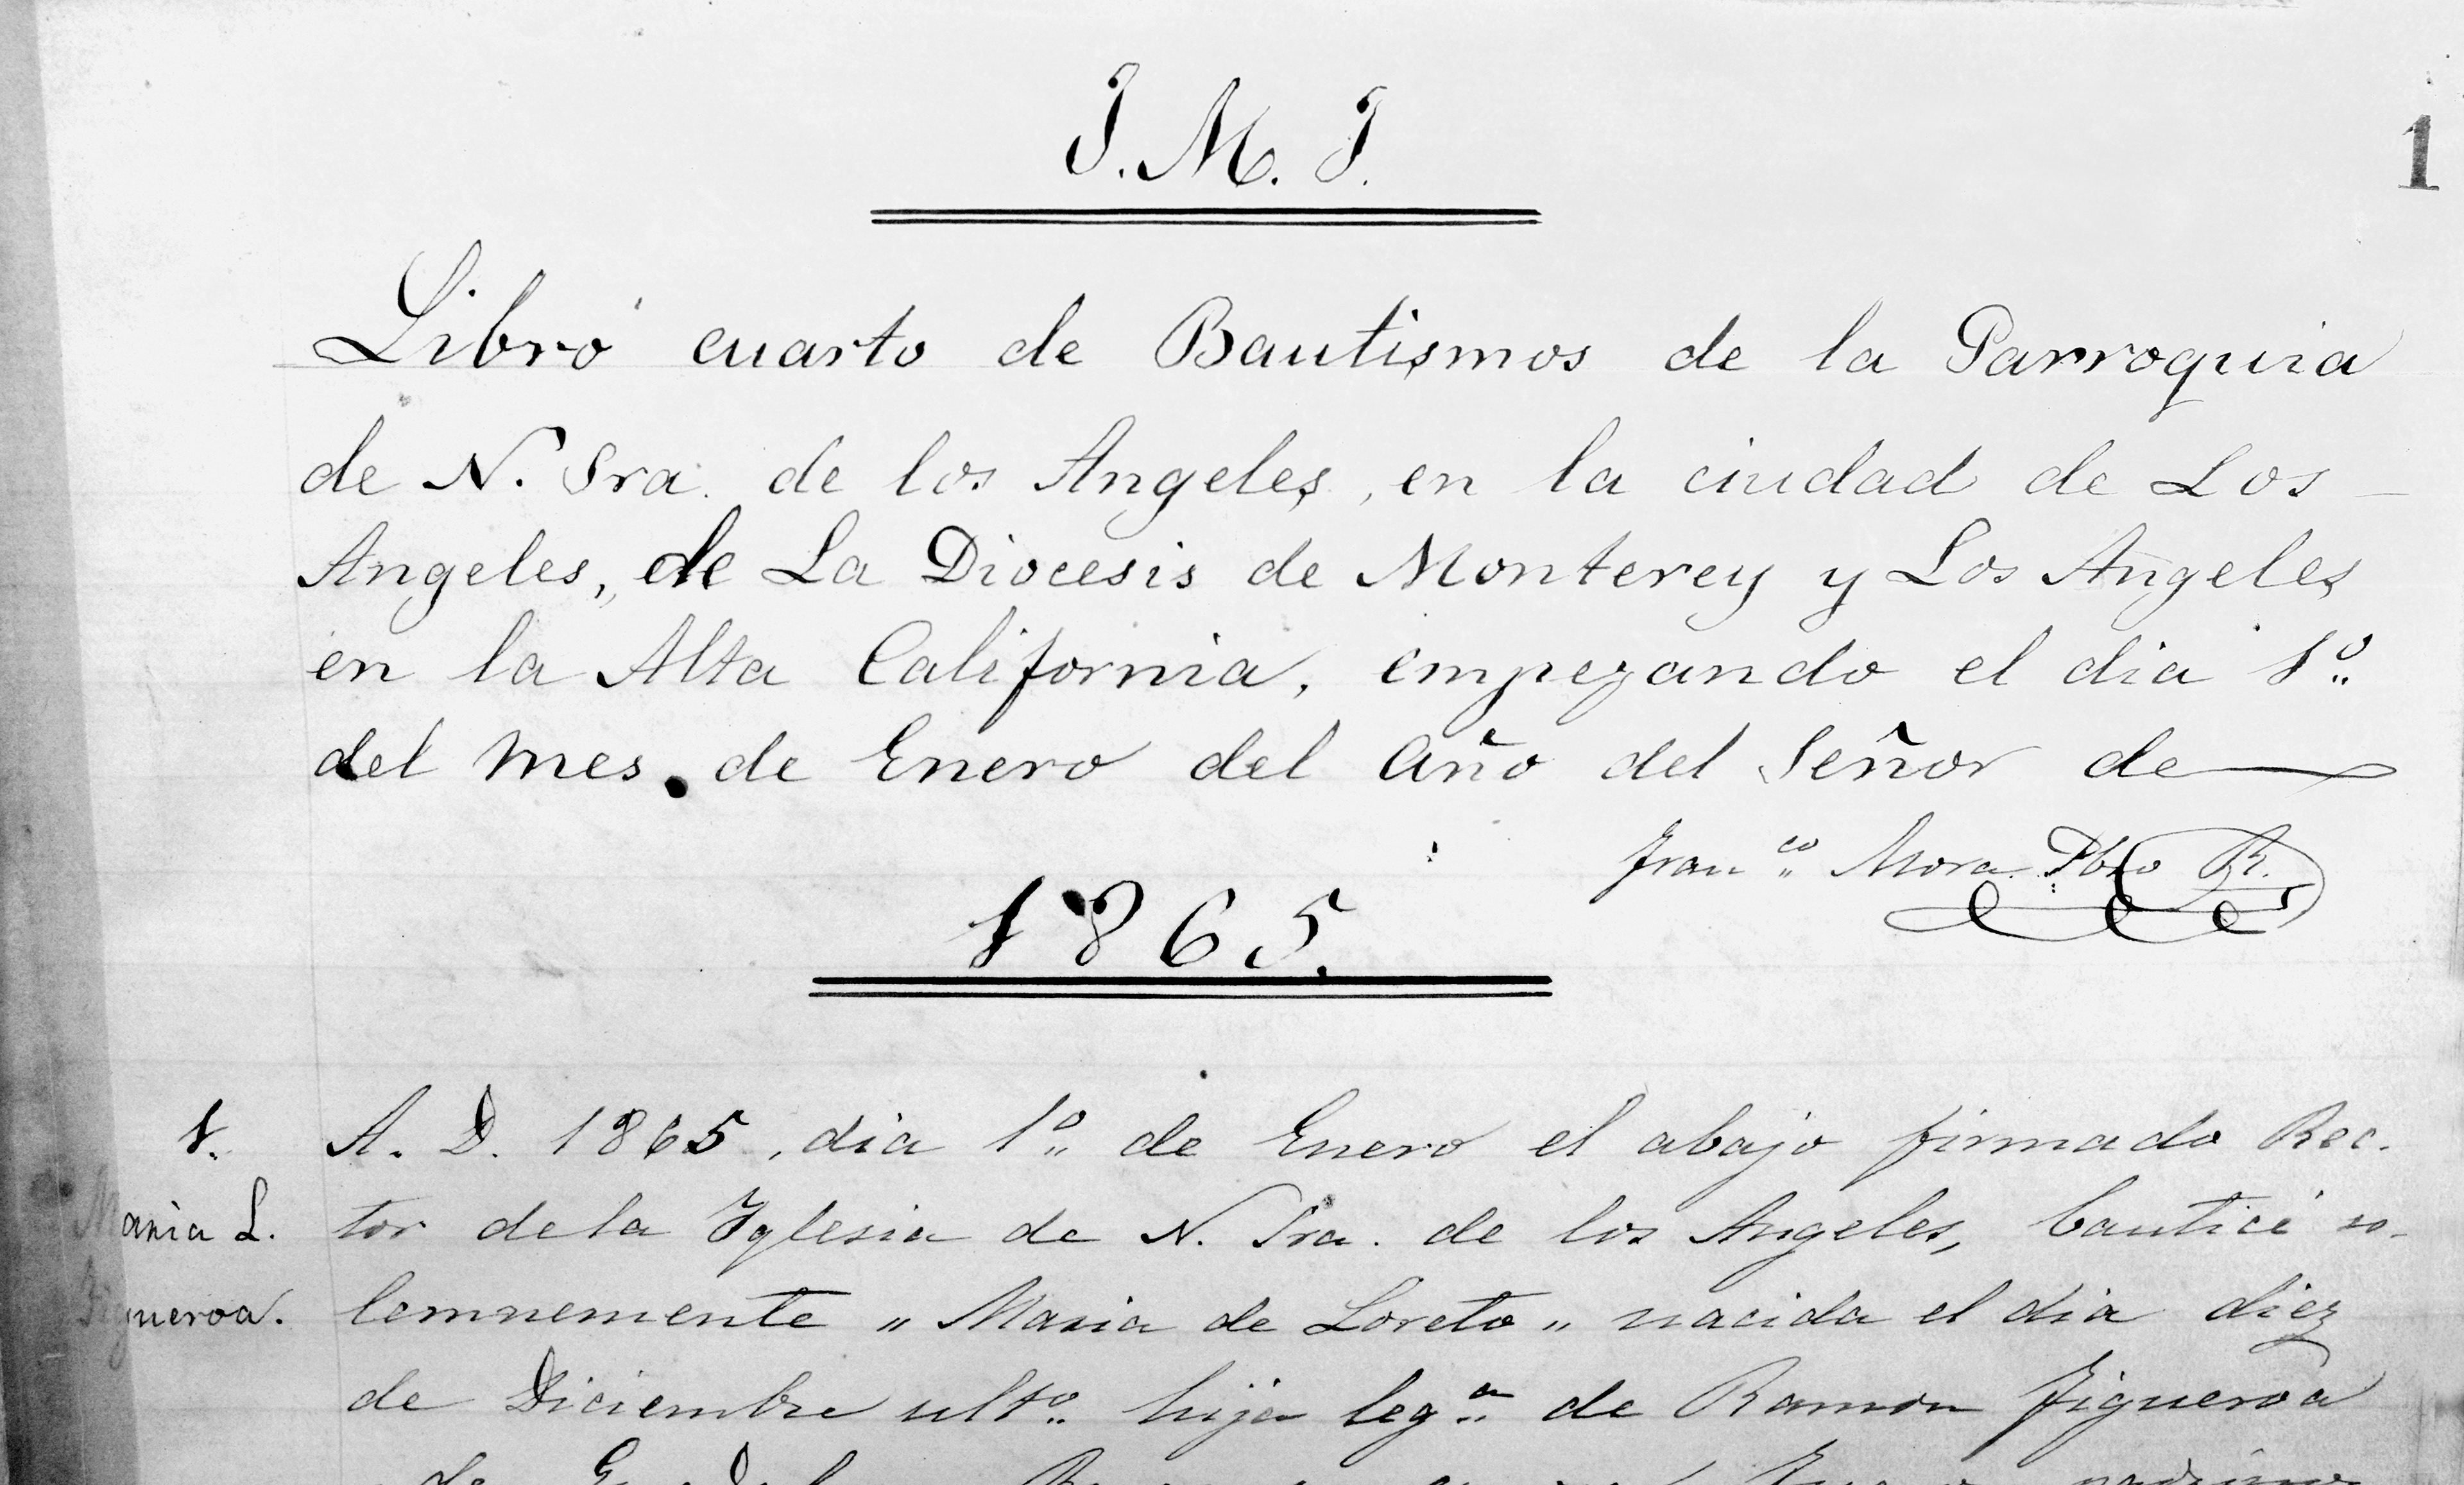 J. M. J.
1
Libro cuarto de Bautismos de la Parroquia
de N. Sra. de los Angeles, en la ciudad de Los
Angeles, de La Diocesis de Monterey y Los Angeles
en la Alta California, empezando el dia 1º
del mes de Enero del año del Señor de
Franco Mora Pbro R.
1865.
1. A. D. 1865, dia 1º de Enero el abajo firmado Rec-
Maria L. tor de la Yglesia de N. Sra. de los Angeles, bauticé so-
Figueroa. lemnemente "Maria de Loreto" nacida el dia diez
de Diciembre ulto. hija lega. de Ramon Figueroa